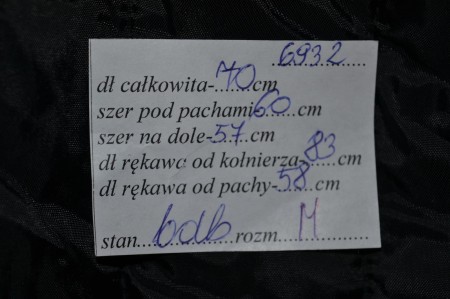 6932
dł całkowita-70cm
szer pod pachami60cm
szer na dole-57cm
dł rękawa od kolnierza-83cm
dł rękawa od pachy-58cm
stan bdb rozm M